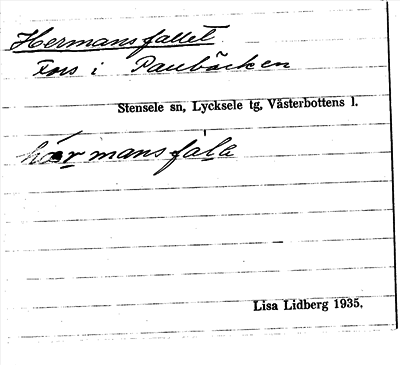 Hermansfallet.
Fors i Paubäcken
Stensele sn, Lycksele tg, Västerbottens l.
härmansfale
Lisa Lidberg 1935.